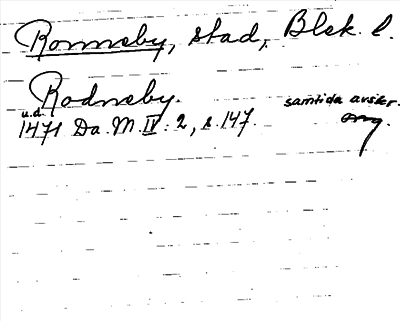 Ronneby, stad, Blek. l.
Rodneby.
u.d.
1471 Da. M. IV: 2, s. 147. samtida avskr.